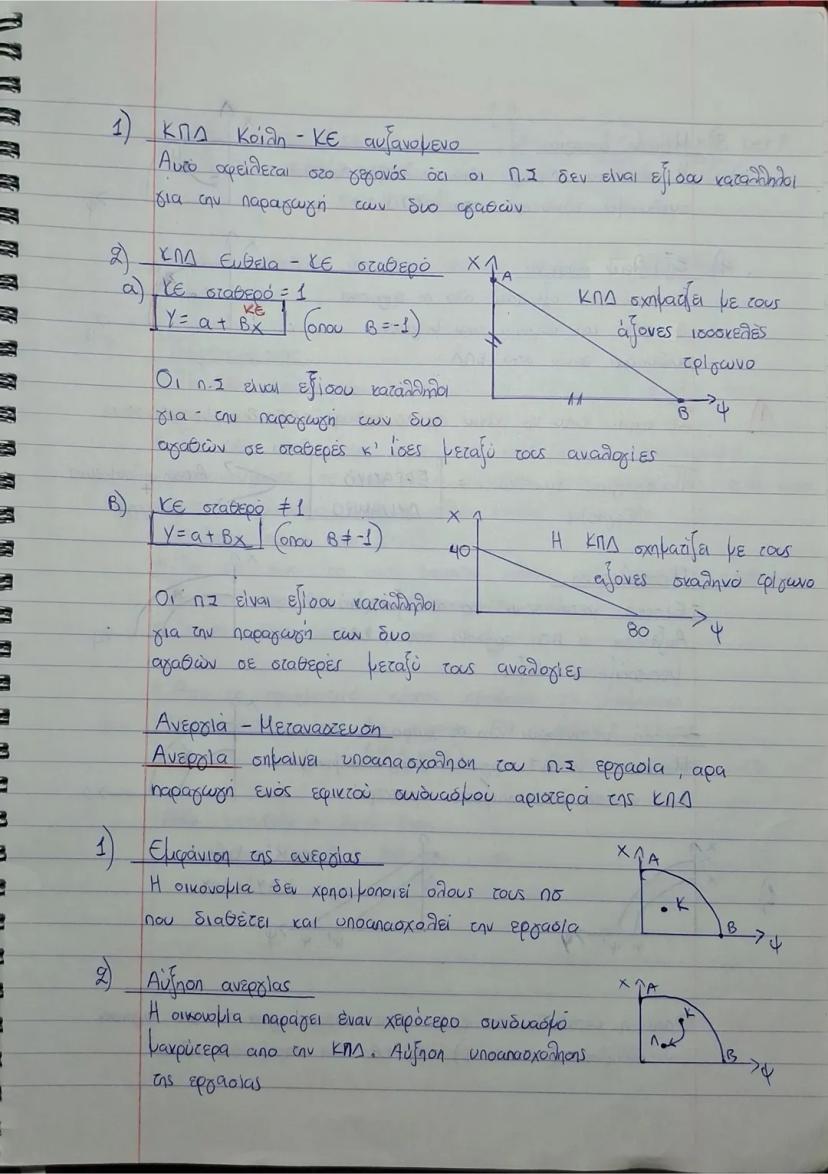 1) ΚΠΔ Κοίλη - ΚΕ αυξανομενο
Αυτο οφείλεται στο γεγονός ότι οι Π.Σ δεν είναι εξίσου κατάλληλοι
για την παραγωγή των δυο αγαθών
2) ΚΠΔ ευθεια - ΚΕ σταθερό
α) ΚΕ σταθερό = 1
ΚΕ
Υ = α + Βx (οπου Β = -1)
Οι π.Σ είναι εξίσου κατάλληλοι
για - την παραγωγή των δυο
αγαθών σε σταθερές κ' ίσες μεταξύ τους αναλογίες
Χ
Α
Β
Ψ
ΚΠΔ σχηματίζει με τους
άξονες ισοσκελές
τρίγωνο
Β) ΚΕ σταθερό ≠ 1
Υ = α + Βx (οπου Β ≠ -1)
Οι πΣ είναι εξίσου κατάλληλοι
για την παραγωγή των δυο
αγαθών σε σταθερές μεταξύ τους αναλογίες
Χ
40
80
Ψ
Η ΚΠΔ σχηματίζει με τους
άξονες σκαληνό τρίγωνο
Ανεργία - Μεταναστευση
Ανεργία σημαίνει υποαπασχόληση του π.Σ εργασία, αρα
παραγωγή ενός εφικτού συνδυασμού αριστερά της ΚΠΔ
1) Εμφάνιση της ανεργίας
Η οικονομία δεν χρησιμοποιεί ολους τους πσ
που διαθέτει και υποαπασχολεί την εργασία
Χ
Α
Κ
Β
Ψ
2) Αύξηση ανεργίας
Η οικονομία παράγει έναν χειρότερο συνδυασμό
μακρύτερα απο την ΚΠΔ. Αύξηση υποαπασχόλησης
της εργασίας
Χ
Α
Κ
Λ
Β
Ψ